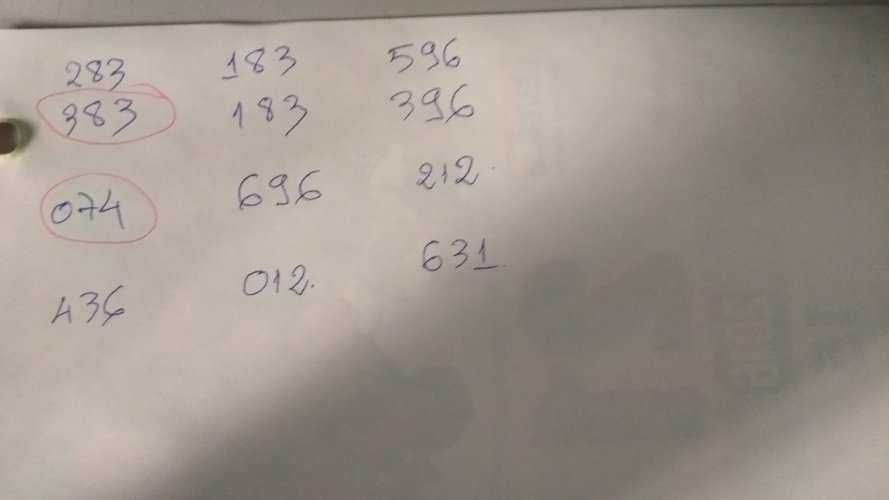 283 183 596
383 183 396
074 696 212.
436 012. 631.